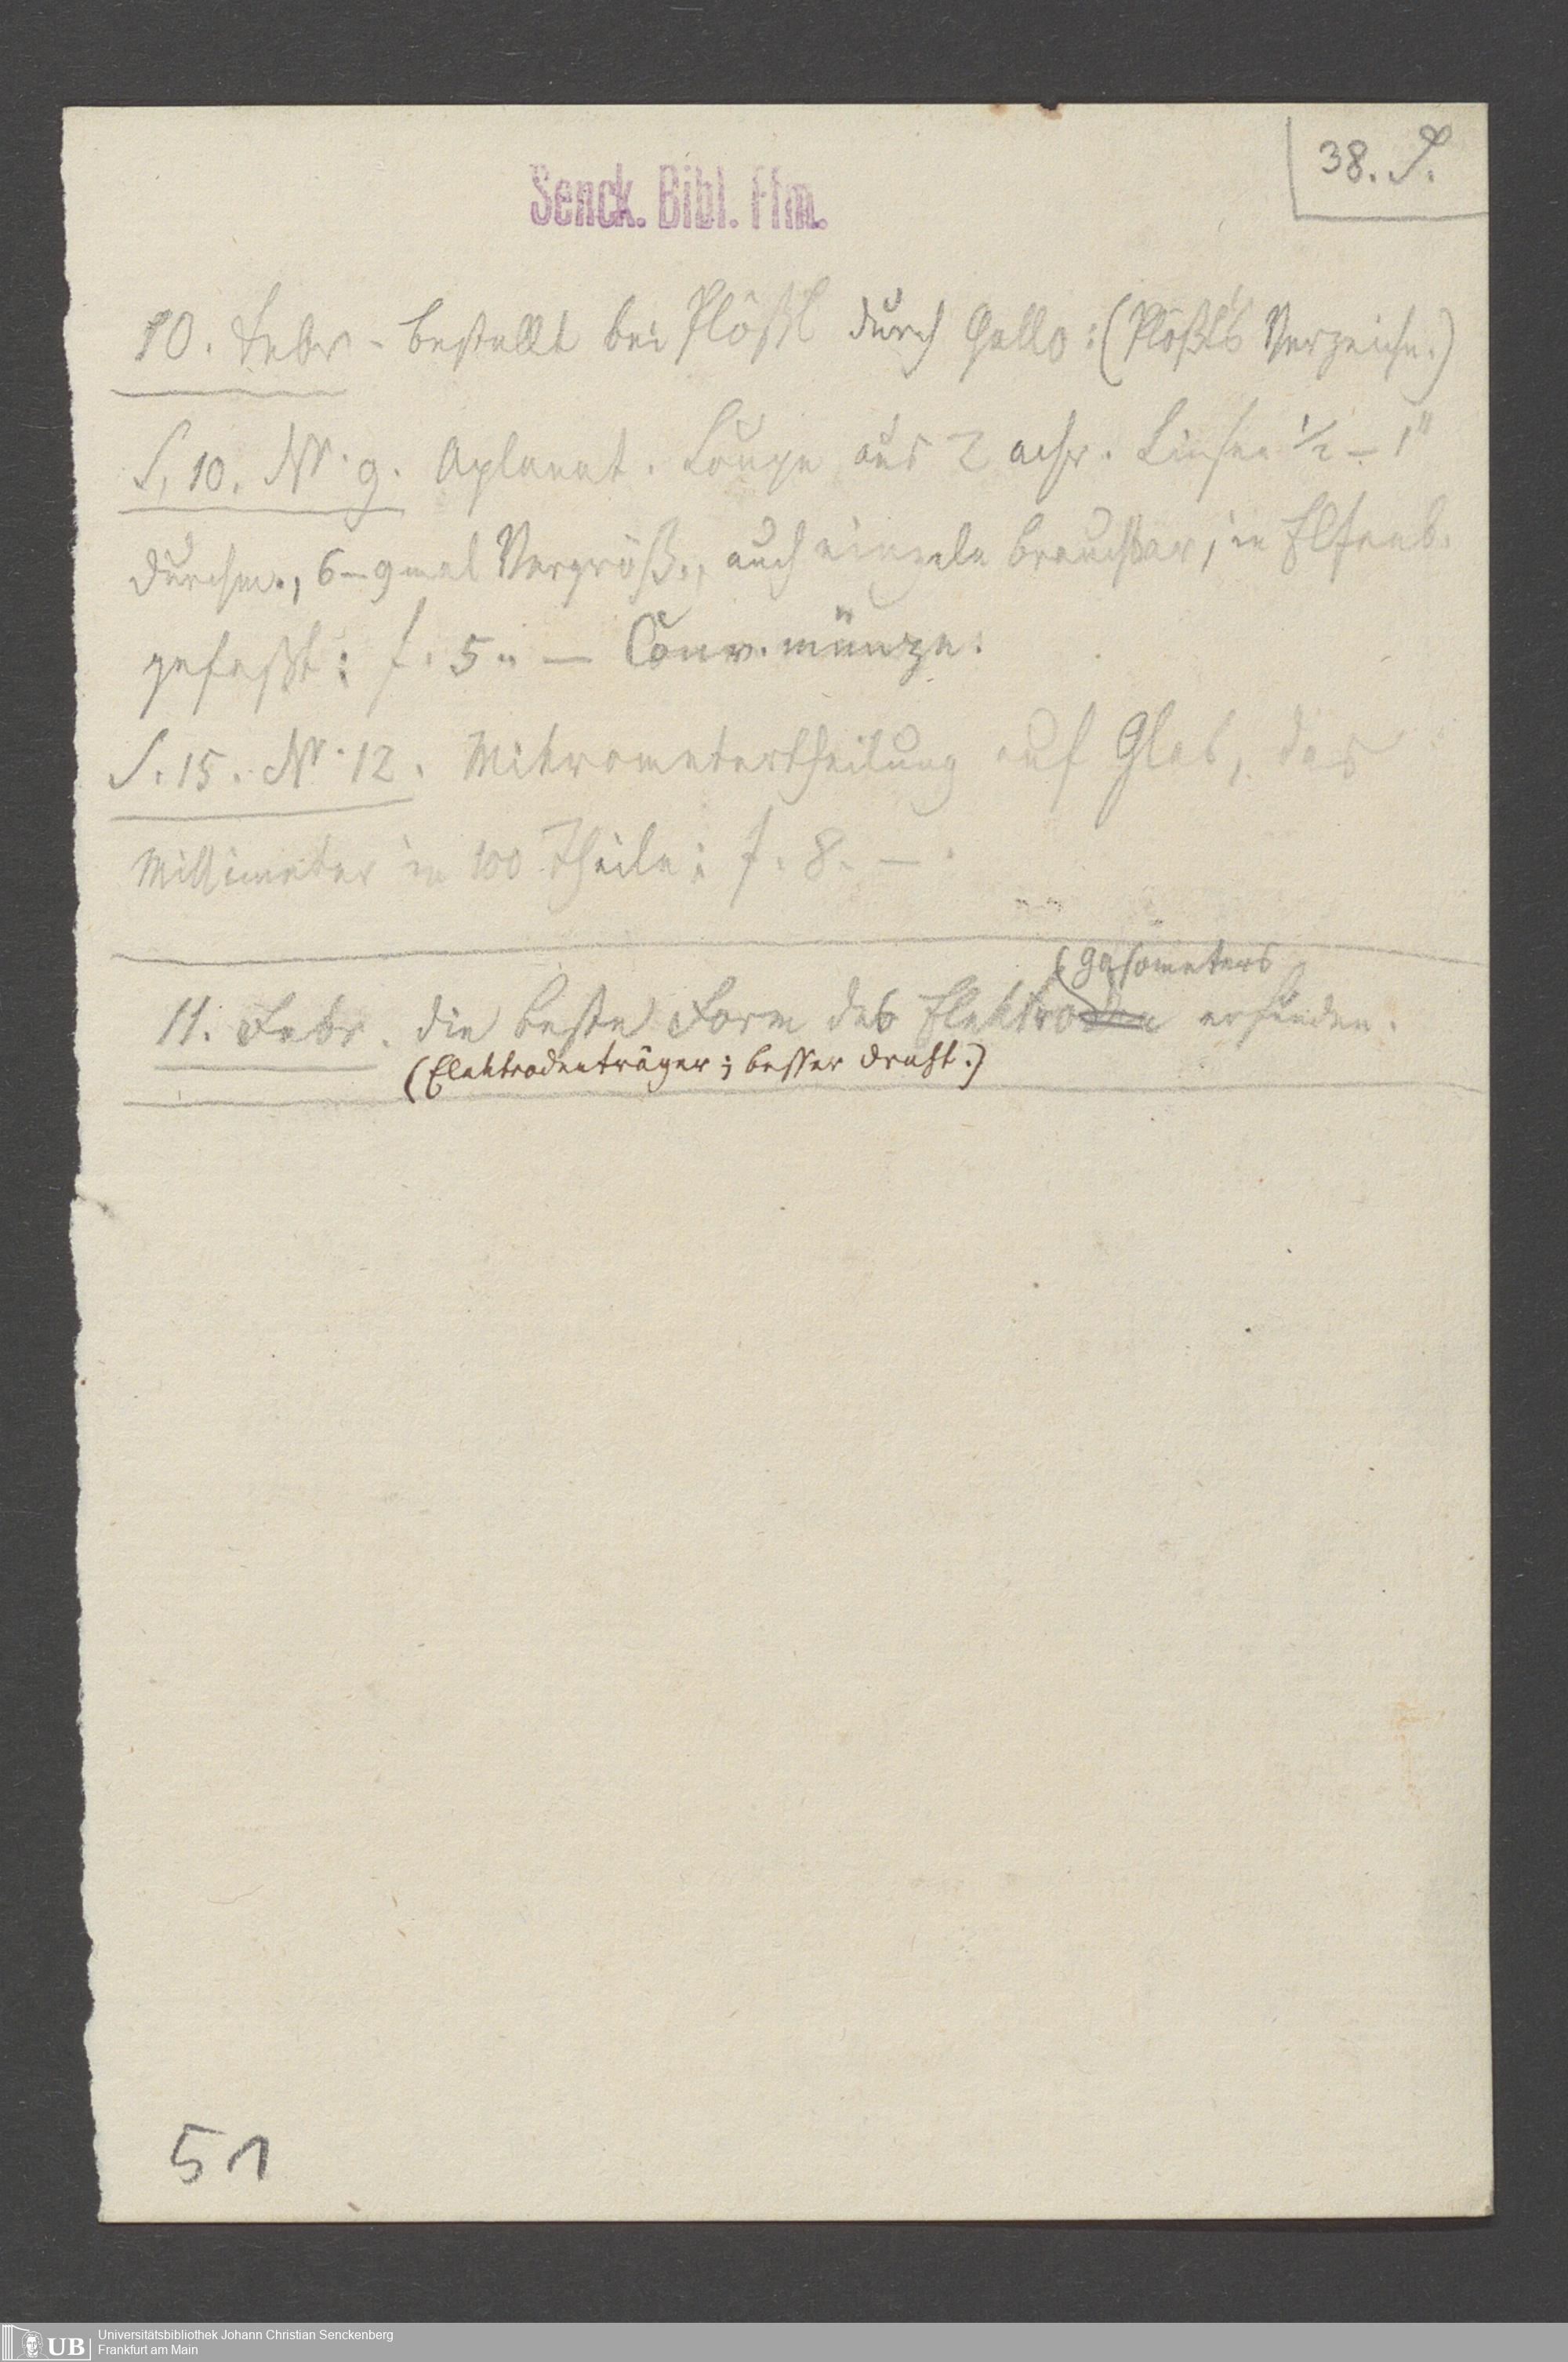 38. S.
Senck. Bibl. Ffm.
10. Febr. bestellt bei Plößl durch Gallo: (Plößl's Verzeichn.)
S. 10. Nr. 9. Aplanat. Loupe aus 2 achr. Linsen 1/2 – 1"
Durchm., 6–9mal Vergröß., auch einzeln brauchbar, in Elfenb.
gefaßt: f. 5 „ — Conv. münze.
S. 15. Nr. 12. Mikrometertheilung auf Glas, das
Millimeter in 100 Theile: f. 8. — .
gasometers
11. Febr. die beste Form des Elektroden erfinden.
(Elektrodenträger; besser Draht.)
51
UB Universitätsbibliothek Johann Christian Senckenberg
Frankfurt am Main